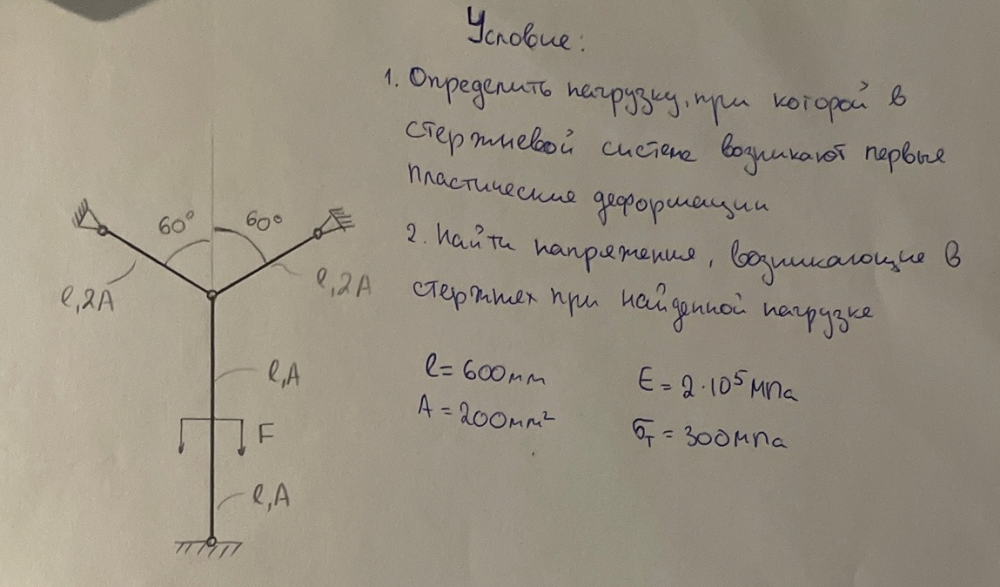 Условие:
1. Определить нагрузку, при которой в
стержневой система возникают первые
пластические деформации
2. Найти напряжения, возникающие в
стержнях при найденной нагрузке
60° 60°
l,2A l,2A
l,A
F
l,A
l = 600мм E = 2·10⁵ МПа
A = 200мм² σт = 300МПа